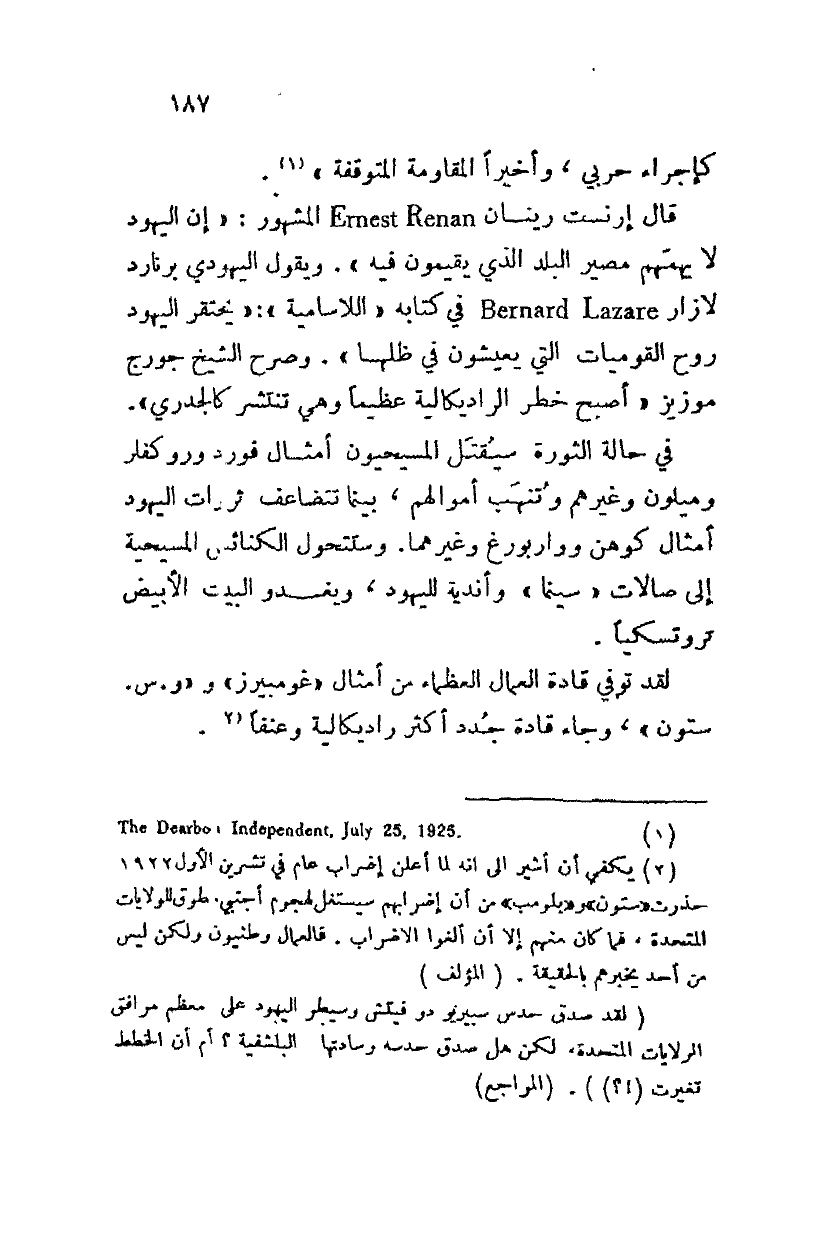 ١٨٧
كإجراء حربي ، وأخيراً المقاومة المتوقفة » (١) .
قال إرنست رينان Ernest Renan المشهور : « إن اليهود
لا يهمّهم مصير البلد الذي يقيمون فيه » . ويقول اليهودي برنارد
لازار Bernard Lazare في كتابه « اللاسامية » :« يحتقر اليهود
روح القوميات التي يعيشون في ظلها » . وصرح الشيخ جورج
موزيز « أصبح خطر الراديكالية عظيماً وهي تنتشر كالجدري».
في حالة الثورة سيُقتَل المسيحيون أمثال فورد وروكفلر
وميلون وغيرهم وتُنهَب أموالهم ، بينما تتضاعف ثروات اليهود
أمثال كوهن وواربورغ وغيرهما. وستتحول الكنائس المسيحية
إلى صالات « سينما » وأندية لليهود ، ويغدو البيت الأبيض
تروتسكياً .
لقد توفي قادة العمال العظماء من أمثال «غومبيرز» و «و.س.
ستون » ، وجاء قادة جُدد أكثر راديكالية وعنفاً ٢) .
(١) The Dearbo Independent, July 25, 1925.
(٢) يكفي أن أشير الى انه لما أعلن إضراب عام في تشرين الأول ١٩٢٢
حذرت «ستون» و«بلومب» من أن إضرابهم سيستغل لهجوم أجنبي. طوق للولايات
المتحدة ، فما كان منهم إلا أن ألغوا الاضراب . فالعمال وطنيون ولكن ليس
من أحد يخبرهم بالحقيقة . ( المؤلف )
( لقد صدق حدس سبيرنو دو فيتش وسيطر اليهود على معظم مرافق
الولايات المتحدة، لكن هل صدق حدسه وسادتها البلشفية ؟ أم أن الخطط
تغيرت (؟!) ) . (المراجع)